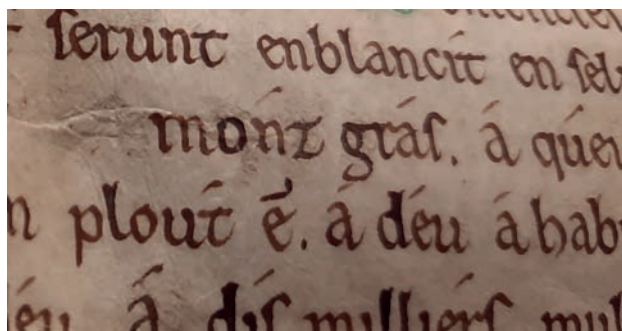 ſerunt enblancít en ſel
mónt gráſ. á quei
n ploút é. á déu á hab
éu á díſ milliérſ mul